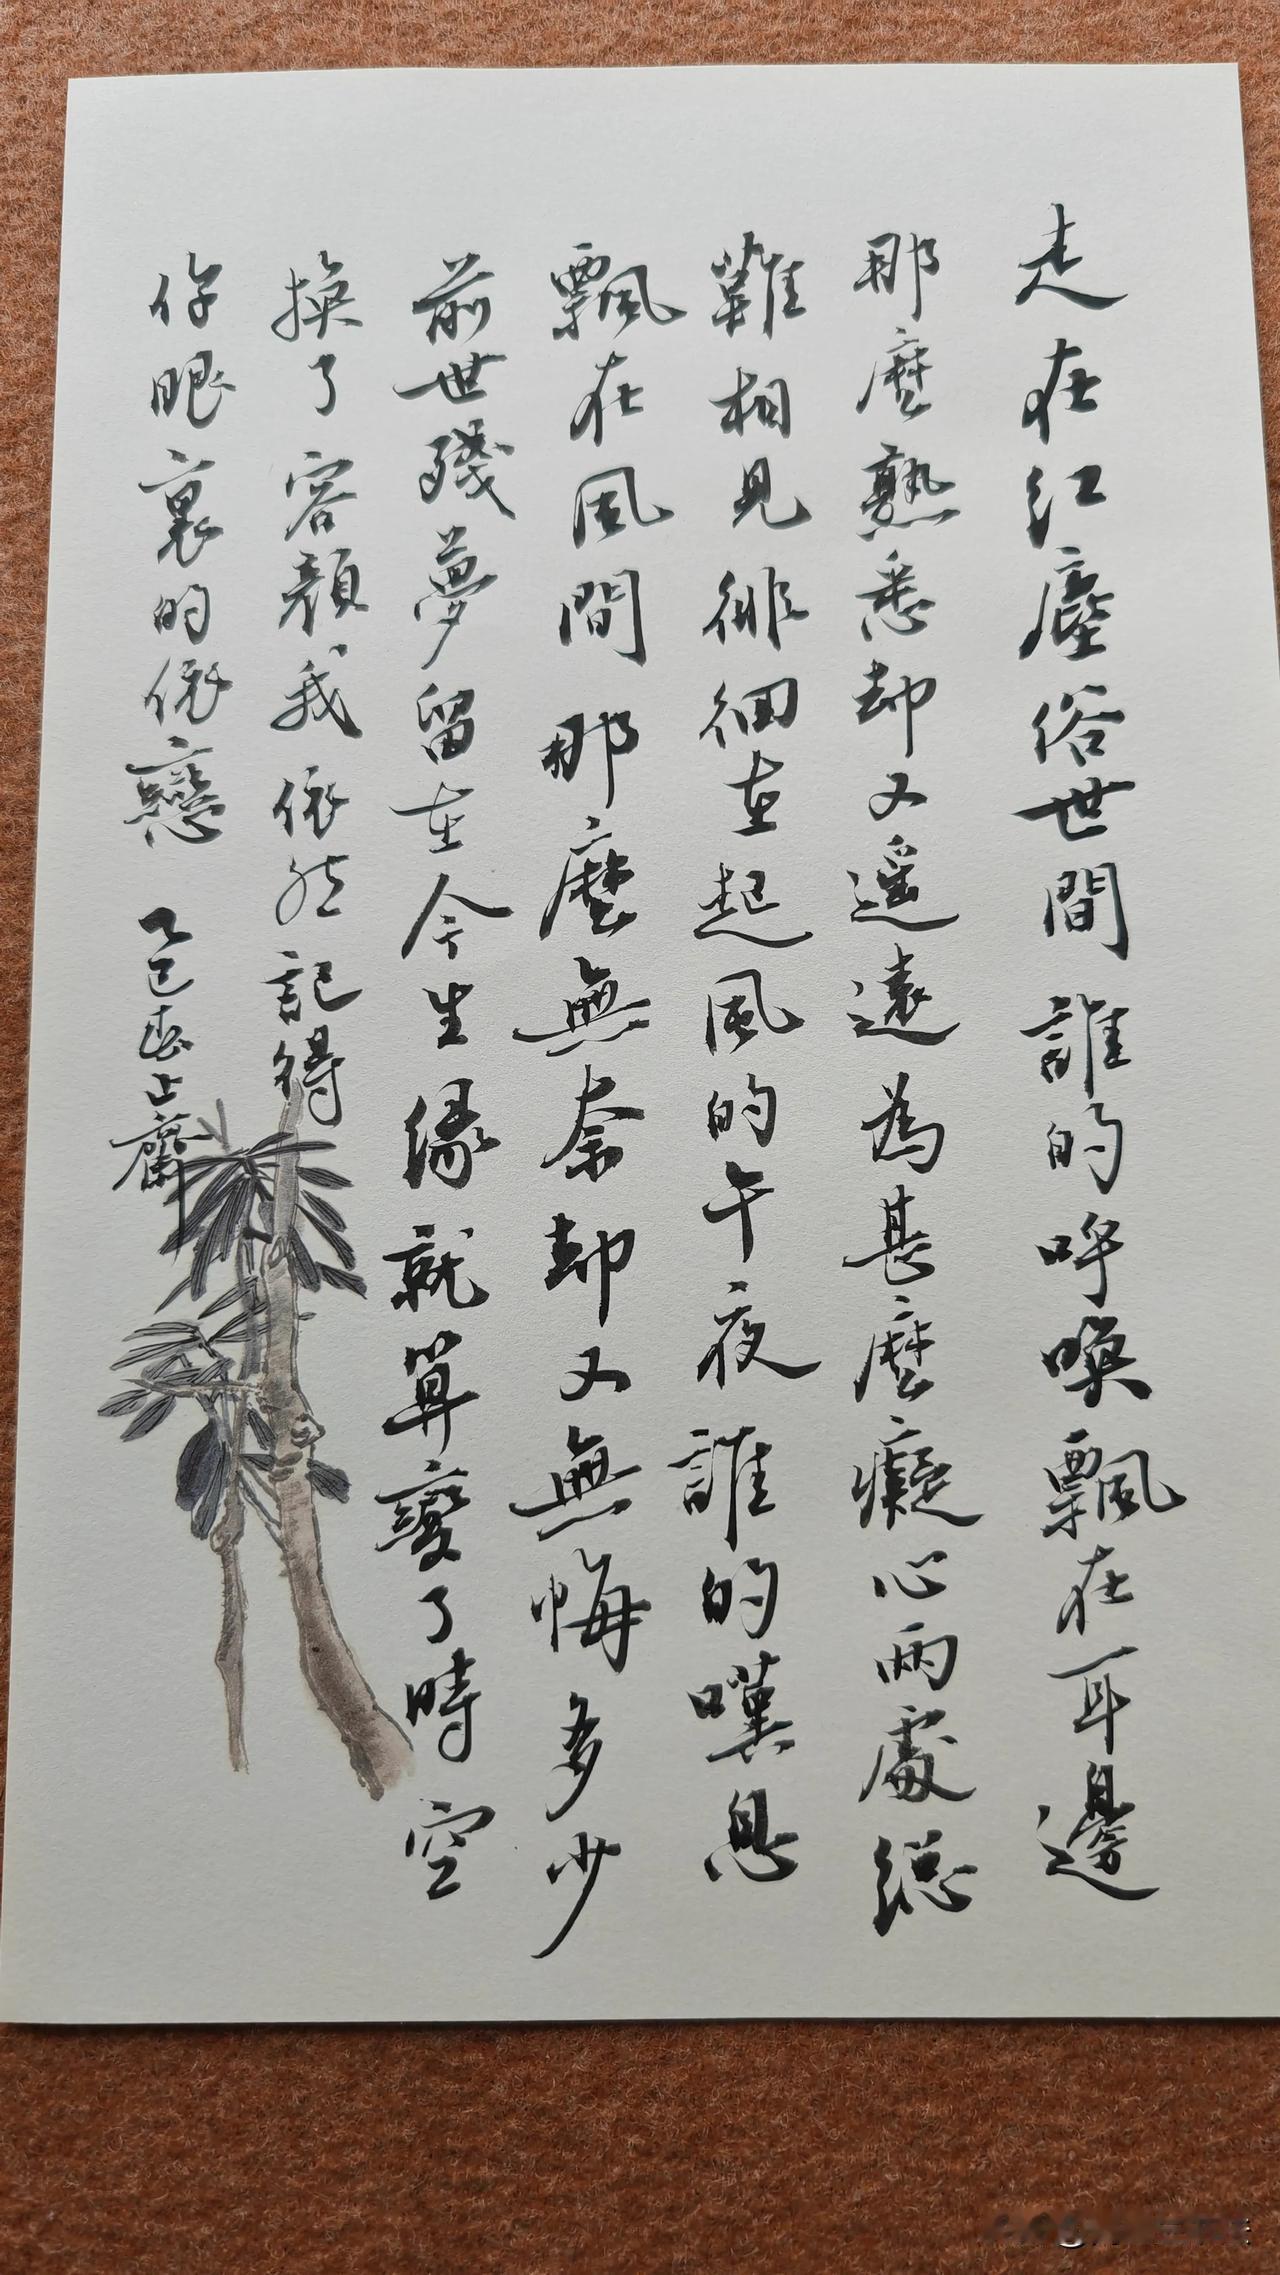 走在紅塵俗世間 誰的呼喚飄在耳邊
那麼熟悉却又遥遠 為甚麼癡心兩處總
難相見徘徊在起風的午夜 誰的嘆息
飄在風間 那麼無奈却又無悔 多少
前世殘夢留在今生緣 就算變了時空
換了容顏我依然記得
你眼裏的依戀 乙巳春止齋